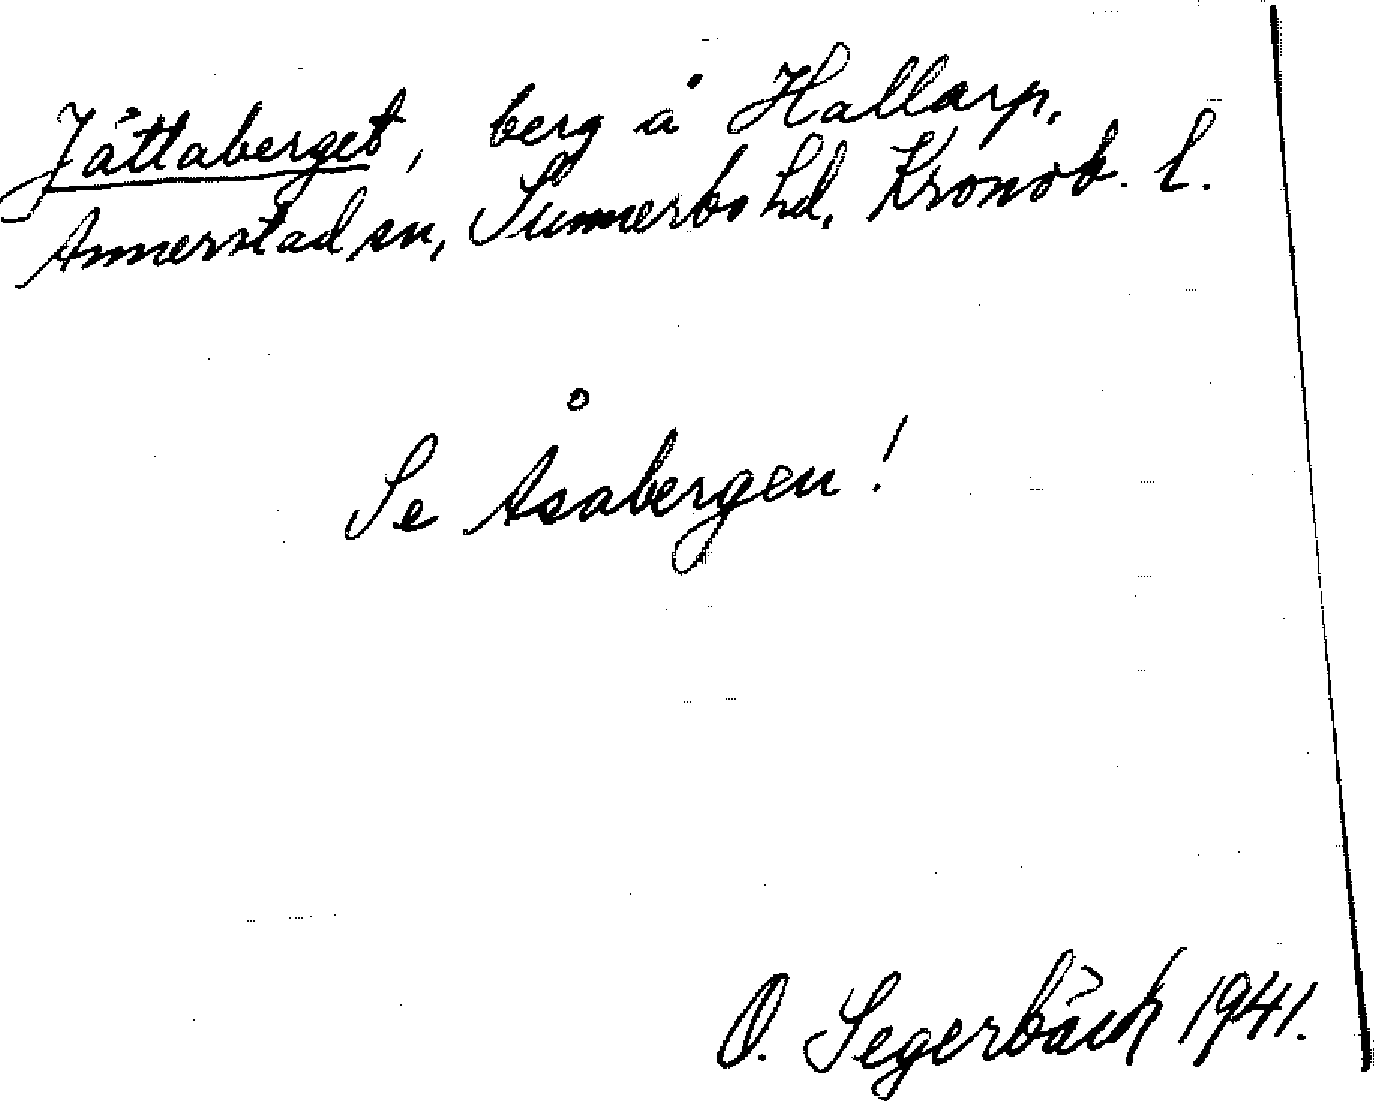 Jättaberget, berg å Hallarp,
Annerstad sn, Sunnerbo hd, Kronob. l.
Se Åsabergen!
O. Segerbäck 1941.